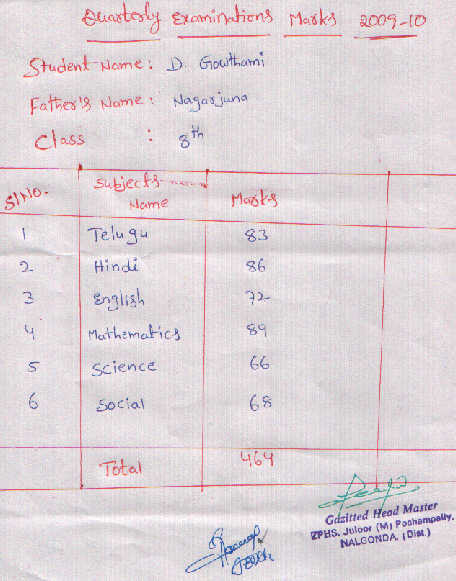 Quarterly Examinations Marks 2009-10
Student Name : D. Gowthami
Father's Name : Nagarjuna
Class : 8th
Sl No. Subjects Name Marks
1 Telugu 83
2 Hindi 86
3 English 72
4 Mathematics 89
5 Science 66
6 Social 68
Total 464
Gazitted Head Master
ZPHS. Juloor (M) Pochampally,
NALGONDA. (Dist.)